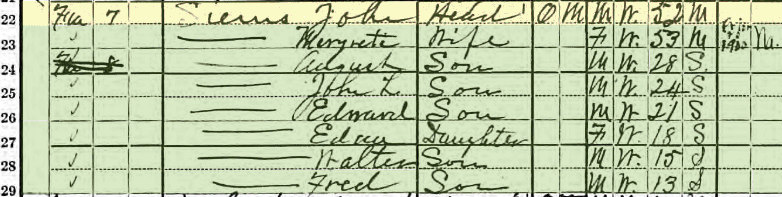 22 Fm 7 Siems John Head O M M W. 52 M
23 Margrete Wife F W. 53 M Na
24 August Son M W. 28 S
25 John L Son M W. 24 S
26 Edward Son M W. 21 S
27 Daughter F W. 18 S
28 Walter Son M W. 15 S
29 Fred Son M W. 13 S